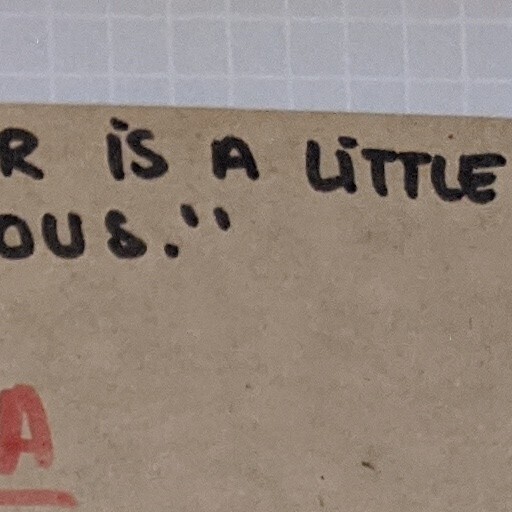 R is A LiTTLE
OUS."
A